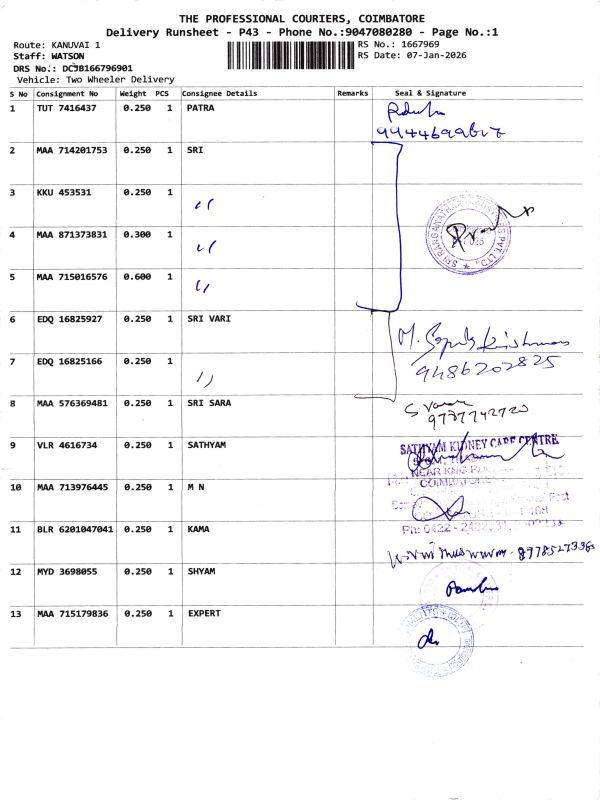 THE PROFESSIONAL COURIERS, COIMBATORE
Delivery Runsheet - P43 - Phone No.:9047080280 - Page No.:1
Route: KANUVAI 1 RS No.: 1667969
Staff: WATSON RS Date: 07-Jan-2026
DRS No.: DCJB166796901
Vehicle: Two Wheeler Delivery
S No Consignment No Weight PCS Consignee Details Remarks Seal & Signature
1 TUT 7416437 0.250 1 PATRA
2 MAA 714201753 0.250 1 SRI
3 KKU 453531 0.250 1 "
4 MAA 871373831 0.300 1 "
5 MAA 715016576 0.600 1 "
6 EDQ 16825927 0.250 1 SRI VARI
9486202825
7 EDQ 16825166 0.250 1 "
8 MAA 576369481 0.250 1 SRI SARA
9737742720
9 VLR 4616734 0.250 1 SATHYAM SATHYAM KIDNEY CARE CENTRE
10 MAA 713976445 0.250 1 M N
11 BLR 6201047041 0.250 1 KAMA
12 MYD 3698055 0.250 1 SHYAM
13 MAA 715179836 0.250 1 EXPERT